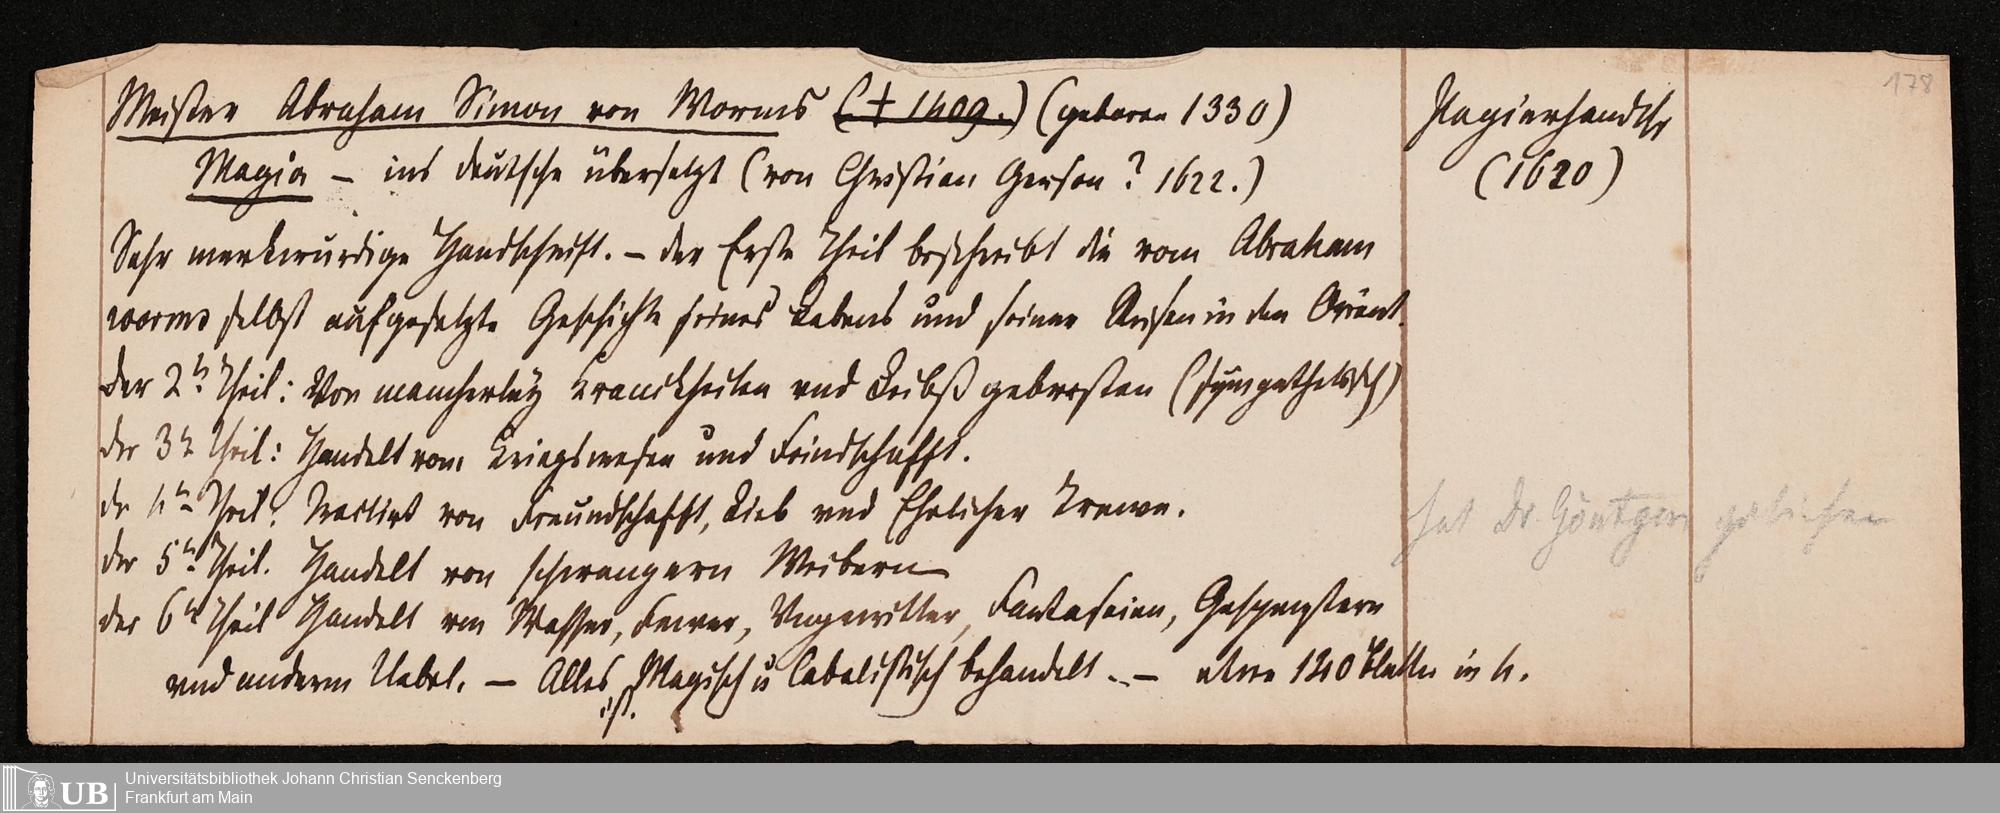 178
Meister Abraham Simon von Worms († 1409.) (geboren 1330)
Papierhandschr
Magia – ins deutsche übersetzt (von Christian Gerson? 1622.)
(1620)
Sehr merkwürdige Handschrift. – der Erste Theil beschreibt die vom Abraham
worms selbst aufgesetzte Geschichte seines Lebens und seiner Reisen in den Orient.
der 2te Theil: Von mancherley Kranckheiten vnd Leibß gebresten (sympathetisch)
der 3te Theil: Handelt vom Kriegswesen und Feindschafft.
der 4te Theil: Tractirt von Freundschafft, Lieb vnd Ehelicher Trewe.
hat Dr. Göntgen geliehen
der 5te Theil. Handelt von schwangern Weibern
der 6te Theil Handelt von Wasser, Fewer, Vngewitter, Fantaseien, Gespenstern
vnd anderm Uebel. – Alles ist Magisch u Cabalistisch behandelt. – etwa 120 Blätter in 4.
UB
Universitätsbibliothek Johann Christian Senckenberg
Frankfurt am Main